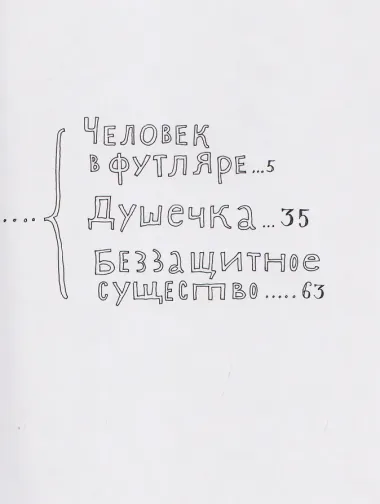 Человек
в футляре...5
Душечка...35
Беззащитное
существо.....63